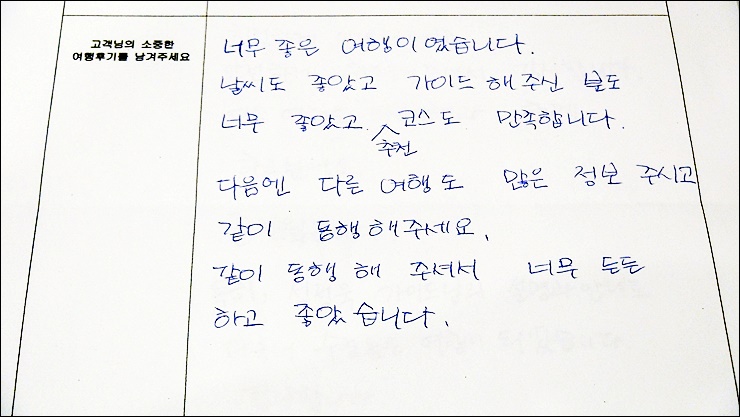 고객님의 소중한
여행후기를 남겨주세요
너무 좋은 여행이였습니다.
날씨도 좋았고 가이드 해주신 분도
너무 좋았고 추천 코스도 만족합니다.
다음엔 다른 여행도 많은 정보 주시고
같이 동행해주세요.
같이 동행 해 주셔서 너무 든든
하고 좋았습니다.